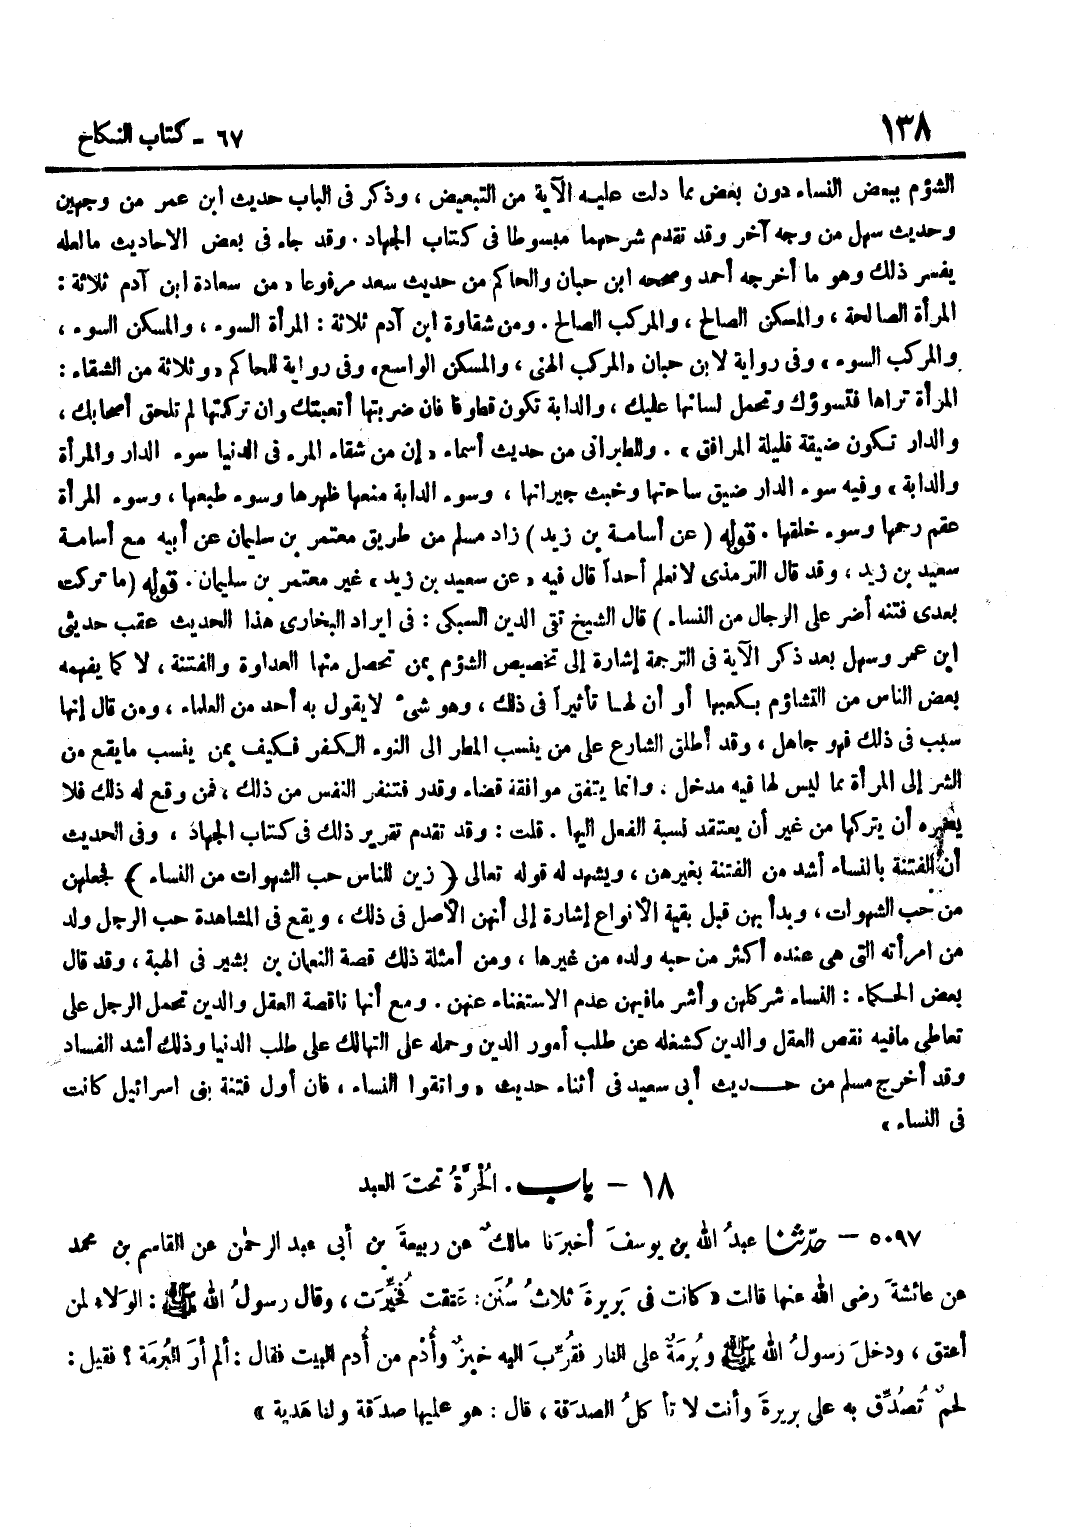 ١٣٨
٦٧ - كتاب النكاح
الشؤم ببعض النساء دون بعض مما دلت عليه الآية من التبعيض ، وذكر فى الباب حديث ابن عمر من وجهين
وحديث سهل من وجه آخر وقد تقدم شرحهما مبسوطا فى كتاب الجهاد . وقد جاء فى بعض الاحاديث مالعله
يفسر ذلك وهو ما أخرجه أحمد وصححه ابن حبان والحاكم من حديث سعد مرفوعا « من سعادة ابن آدم ثلاثة :
المرأة الصالحة ، والمسكن الصالح ، والمركب الصالح . ومن شقاوة ابن آدم ثلاثة : المرأة السوء ، والمسكن السوء ،
والمركب السوء » وفى رواية لابن حبان «المركب الهنى ، والمسكن الواسع» وفى رواية للحاكم « وثلاثة من الشقاء :
المرأة تراها فتسوؤك وتحمل لسانها عليك ، والدابة تكون قطوفا فان ضربتها أتعبتك وان تركتها لم تلحق أصحابك ،
والدار تكون ضيقة قليلة المرافق » . وللطبرانى من حديث أسماء « إن من شقاء المرء فى الدنيا سوء الدار والمرأة
والدابة » وفيه سوء الدار ضيق ساحتها وخبث جيرانها ، وسوء الدابة منعها ظهرها وسوء طبعها ، وسوء المرأة
عقم رحمها وسوء خلقها . قوله ( عن أسامة بن زيد ) زاد مسلم من طريق معتمر بن سليمان عن أبيه مع أسامة
سعيد بن زيد ، وقد قال الترمذى لانعلم أحداً قال فيه « عن سعيد بن زيد » غير معتمر بن سليمان . قوله (ما تركت
بعدى فتنة أضر على الرجال من النساء ) قال الشيخ تقى الدين السبكى : فى ايراد البخارى هذا الحديث عقب حديثى
ابن عمر وسهل بعد ذكر الآية فى الترجمة إشارة إلى تخصيص الشؤم بمن تحصل منها العداوة والفتنة ، لا كما يفهمه
بعض الناس من التشاؤم بكعبها أو أن لها تأثيراً فى ذلك ، وهو شىء لايقول به أحد من العلماء ، ومن قال إنها
سبب فى ذلك فهو جاهل ، وقد أطلق الشارع على من ينسب المطر الى النوء الكفر فكيف بمن ينسب مايقع من
الشر إلى المرأة مما ليس لها فيه مدخل ، وانما يتفق موافقة قضاء وقدر فتنفر النفس من ذلك ، فمن وقع له ذلك فلا
يضره أن يتركها من غير أن يعتقد نسبة الفعل اليها . قلت : وقد تقدم تقرير ذلك فى كتاب الجهاد ، وفى الحديث
أن الفتنة بالنساء أشد من الفتنة بغيرهن ، ويشهد له قوله تعالى ﴿ زين للناس حب الشهوات من النساء ﴾ فجعلهن
من حب الشهوات ، وبدأ بهن قبل بقية الأنواع إشارة إلى أنهن الأصل فى ذلك ، ويقع فى المشاهدة حب الرجل ولد
من امرأته التى هى عنده أكثر من حبه ولده من غيرها ، ومن أمثلة ذلك قصة النعمان بن بشير فى الهبة ، وقد قال
بعض الحكماء : النساء شركلهن وأشر مافيهن عدم الاستغناء عنهن . ومع أنها ناقصة العقل والدين تحمل الرجل على
تعاطى مافيه نقص العقل والدين كشغله عن طلب أمور الدين وحمله على التهالك على طلب الدنيا وذلك أشد الفساد
وقد أخرج مسلم من حديث أبى سعيد فى أثناء حديث « واتقوا النساء ، فان أول فتنة بنى اسرائيل كانت
فى النساء »
١٨ - باب . الحُرَّةُ تحتَ العبد
٥٠٩٧ - حدّثنا عبدُ الله بن يوسفَ أخبرَنا مالكٌ عن ربيعةَ بن أبى عبد الرحمٰن عن القاسم بن محمد
عن عائشةَ رضى الله عنها قالت « كانت فى بَريرةَ ثلاثُ سُنَن: عَتقت فخُيِّرَت ، وقال رسولُ الله ﷺ : الوَلاء لمن
أعتق ، ودخلَ رَسولُ الله ﷺ وبُرمَةٌ على النار فقُرِّبَ اليه خبزٌ وأُدْم من أُدم البيت فقال : ألم أرَ البُرمَة ؟ فقيل :
لحمٌ تُصُدِّق به على بريرةَ وأنت لا تأكلُ الصدَقة ، قال : هو عليها صدَقة ولنا هَدية »